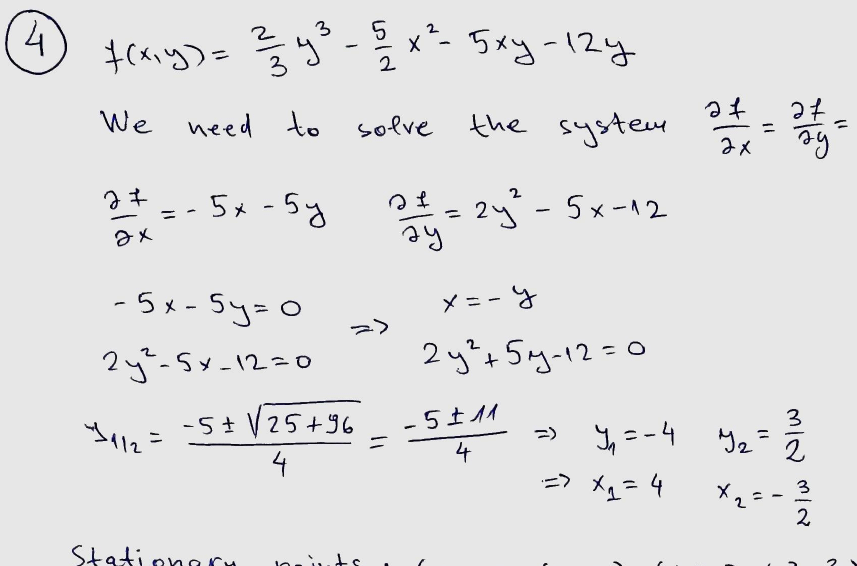 4 f(x,y) = 2/3 y³ - 5/2 x² - 5xy - 12y
We need to solve the system ∂f/∂x = ∂f/∂y =
∂f/∂x = -5x - 5y ∂f/∂y = 2y² - 5x - 12
-5x - 5y = 0 => x = -y
2y² - 5x - 12 = 0 2y² + 5y - 12 = 0
y₁/₂ = (-5 ± √(25+96))/4 = (-5 ± 11)/4 => y₁ = -4 y₂ = 3/2
=> x₁ = 4 x₂ = -3/2
Stationary points